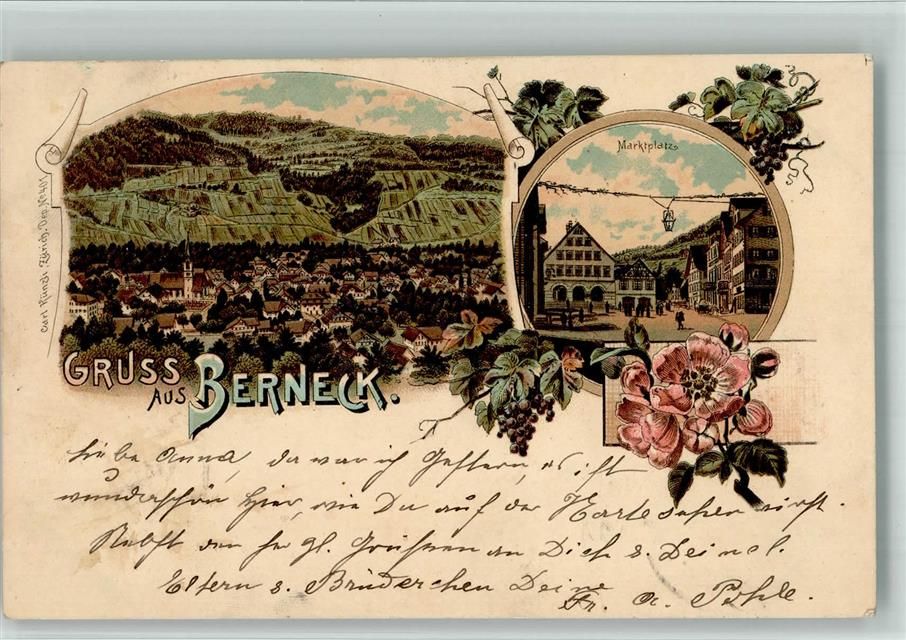 Marktplatz
Carl Künzli, Zürich. Dep. No 401
GRUSS
AUS BERNECK.
Liebe Anna, da war ich gestern, es ist
wunderschön hier, wie Du auf der Karte sehen wirst.
Nebst den hzl. Grüssen an Dich &
Eltern & Brüderchen Deine
Fr. A. Pöhle.